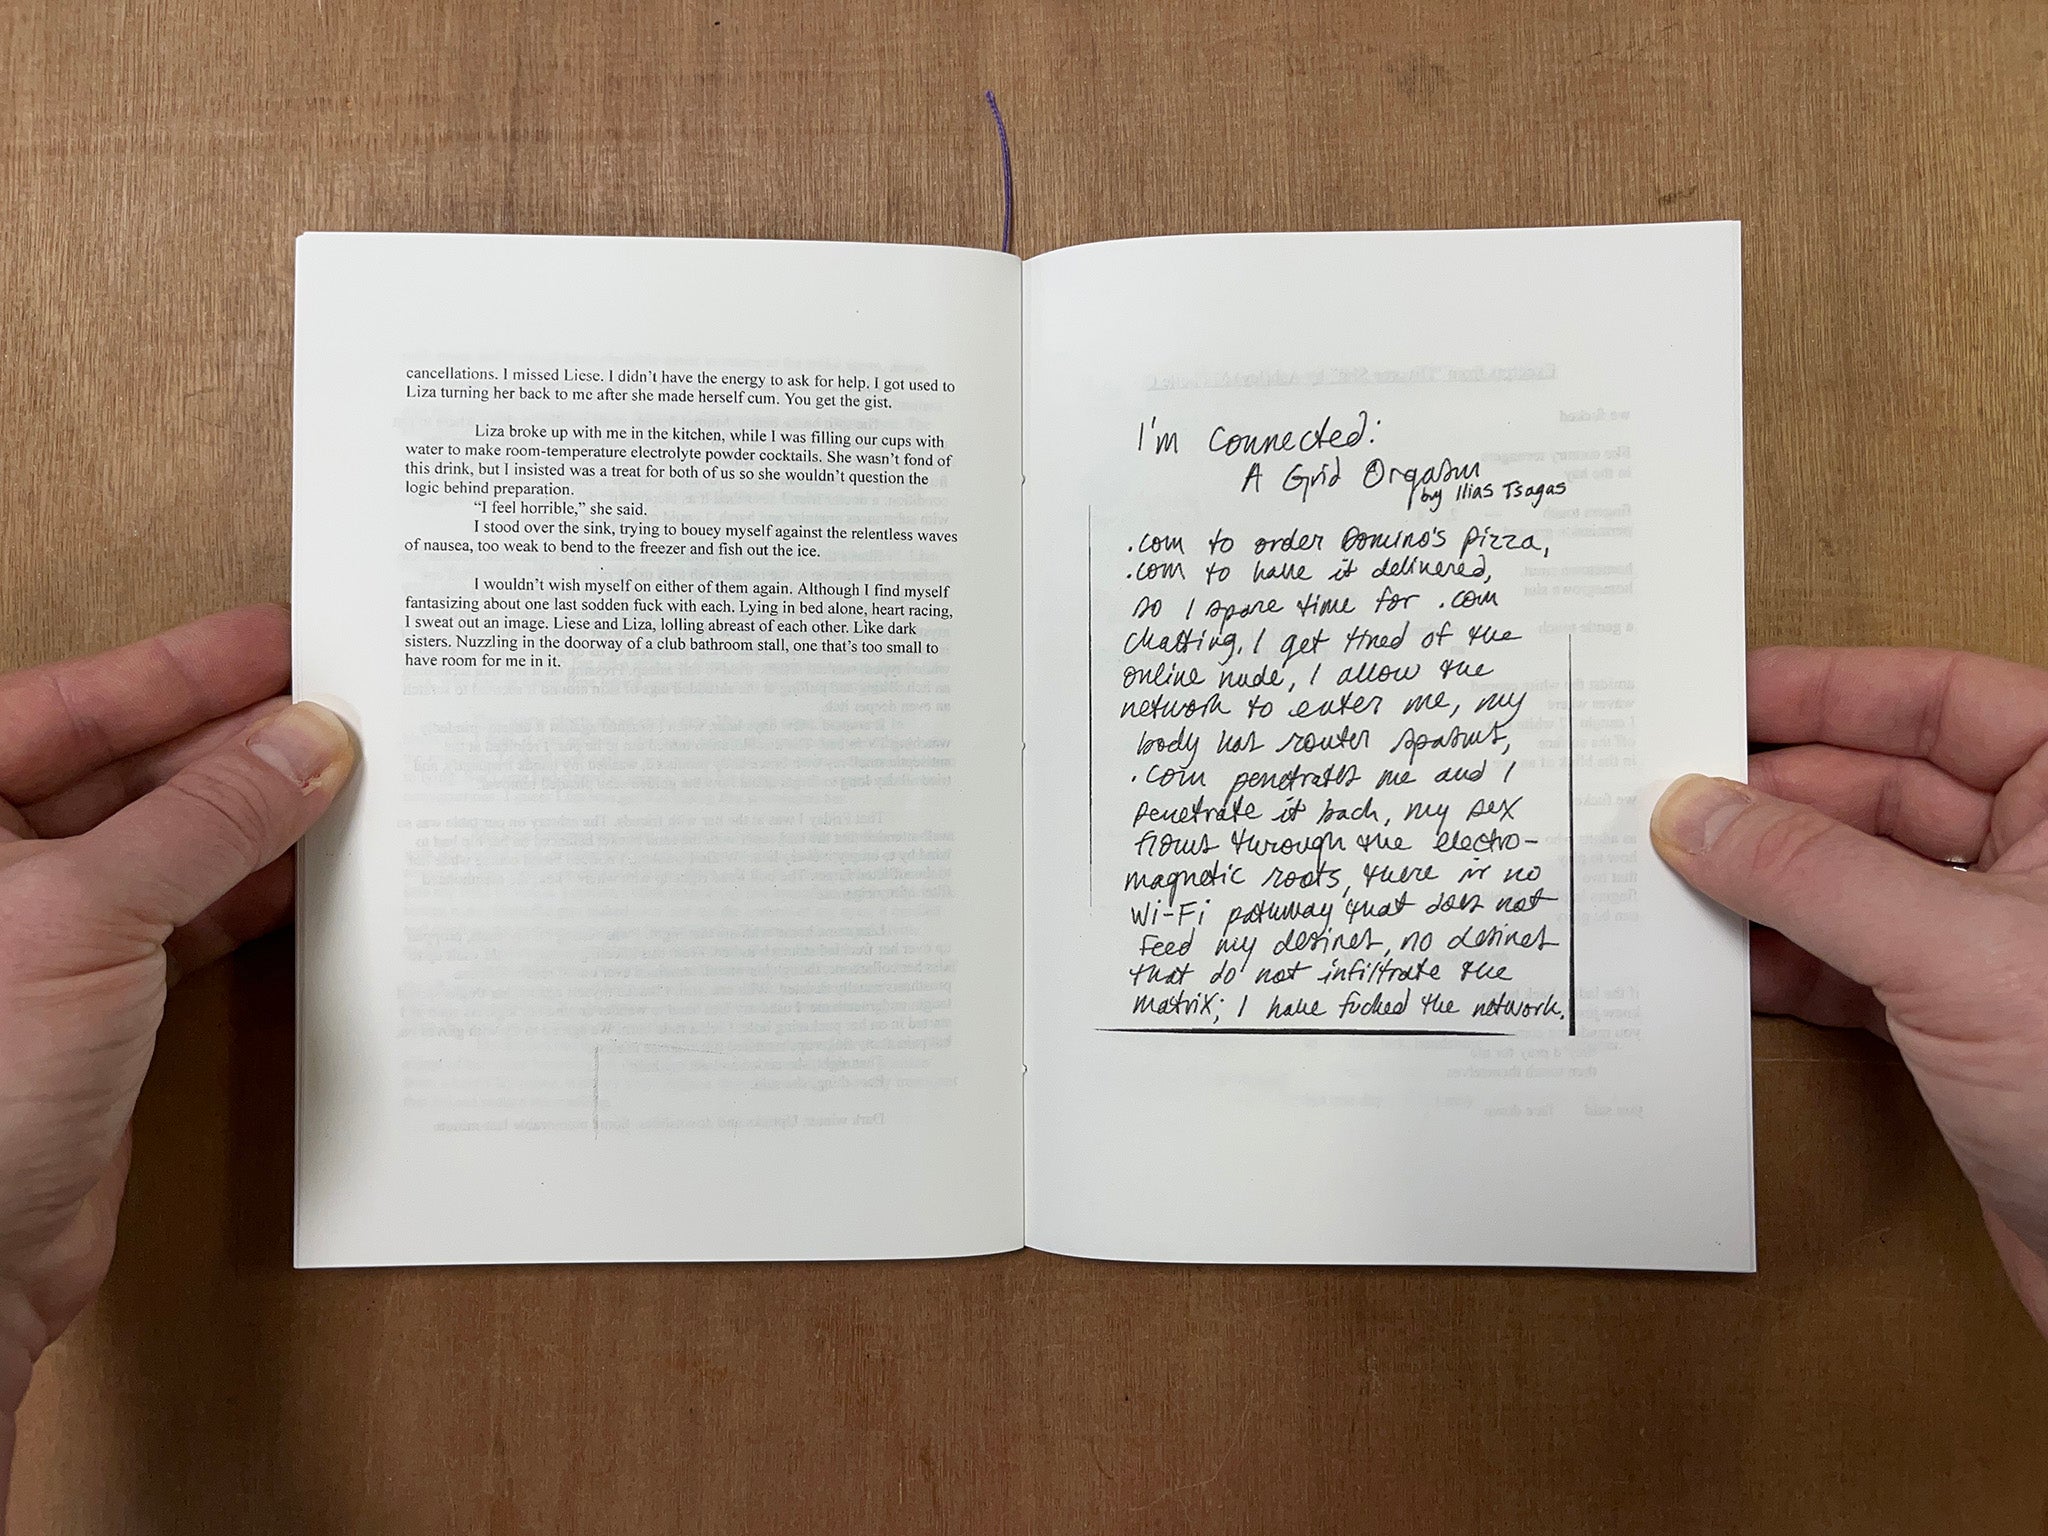 cancellations. I missed Liese. I didn't have the energy to ask for help. I got used to
Liza turning her back to me after she made herself cum. You get the gist.
Liza broke up with me in the kitchen, while I was filling our cups with
water to make room-temperature electrolyte powder cocktails. She wasn't fond of
this drink, but I insisted was a treat for both of us so she wouldn't question the
logic behind preparation.
"I feel horrible," she said.
I stood over the sink, trying to bouey myself against the relentless waves
of nausea, too weak to bend to the freezer and fish out the ice.
I wouldn't wish myself on either of them again. Although I find myself
fantasizing about one last sodden fuck with each. Lying in bed alone, heart racing,
I sweat out an image. Liese and Liza, lolling abreast of each other. Like dark
sisters. Nuzzling in the doorway of a club bathroom stall, one that's too small to
have room for me in it.
I'm Connected:
A Grid Orgasm
by Ilias Tsagas
.com to order Domino's pizza,
.com to have it delivered,
so I spare time for .com
chatting. I get tired of the
online nude, I allow the
network to enter me, my
body has router spasms,
.com penetrates me and I
penetrate it back, my sex
flows through the electro-
magnetic roots, there is no
Wi-Fi pathway that does not
feed my desires, no desires
that do not infiltrate the
matrix; I have fucked the network.